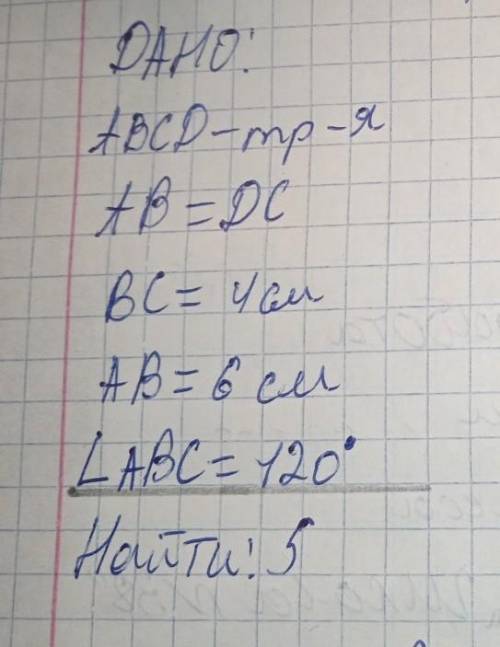 ДАНО:
ABCD-тр-я
AB=DC
BC=4см
AB=6 см
∠ABC=120°
Найти: S